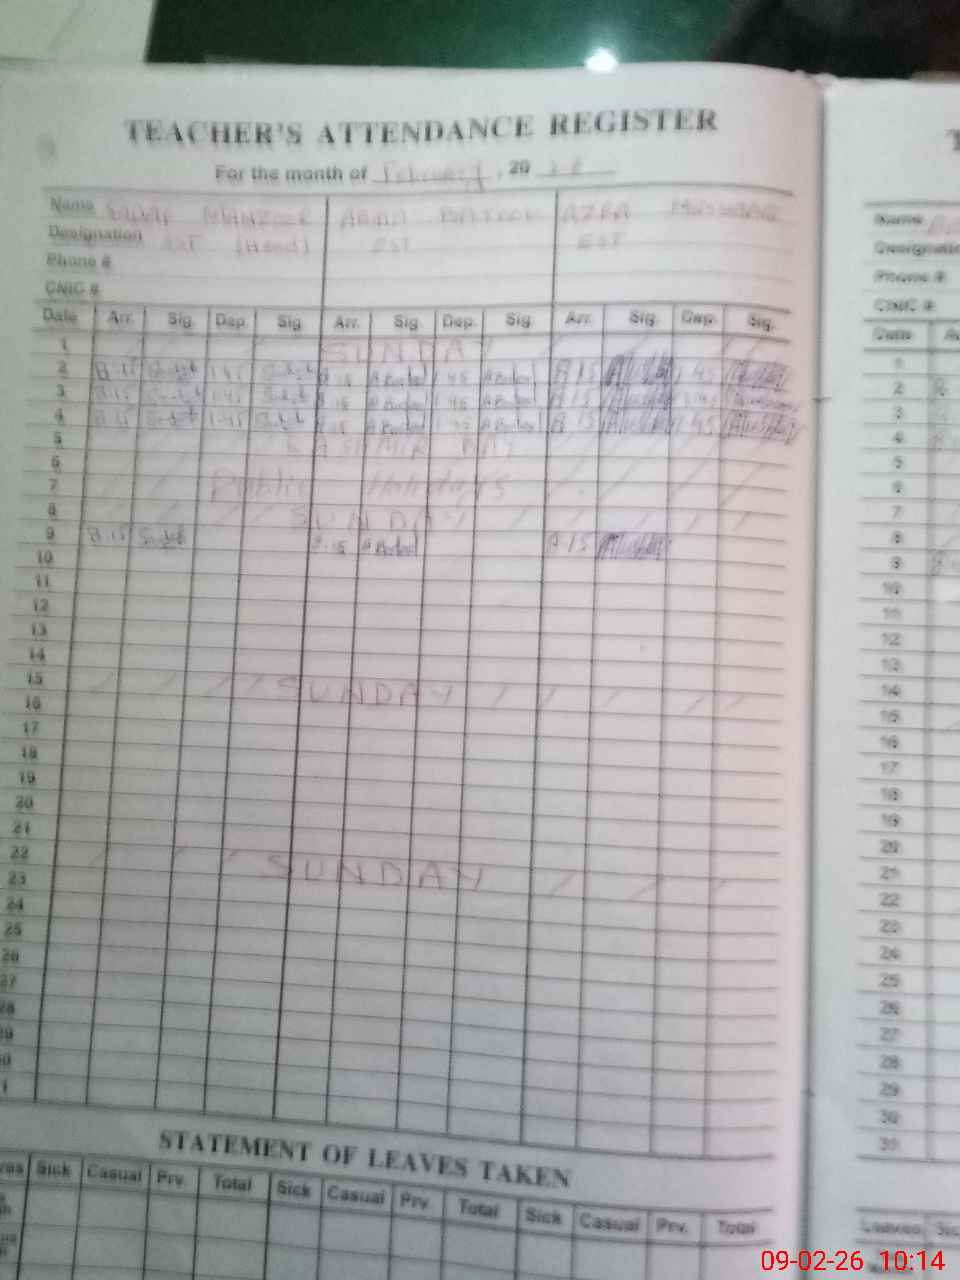 TEACHER'S ATTENDANCE REGISTER
For the month of February, 20 26
Name MANZOOR AZRA
Designation EST (Head) EST EST
Phone #
CNIC #
Date Arr. Sig. Dep. Sig. Arr. Sig. Dep. Sig. Arr. Sig. Dep. Sig.
1 SUNDAY
2 8.15 1.45 8.15 A Batool 1.45 A Batool 8.15 1.45
3 8.15 1.45 8.15 A Batool 1.45 A Batool 8.15 1.45
4 8.15 1.45 8.15 A Batool A Batool 8.15 1.45
5 KASHMIR DAY
6
7 Public Holidays
8 SUNDAY
9 8.15 8.15 A Batool 8.15
10
11
12
13
14
15 SUNDAY
16
17
18
19
20
21
22 SUNDAY
23
24
25
26
27
28
29
30
STATEMENT OF LEAVES TAKEN
Sick Casual Prv. Total Sick Casual Prv. Total Sick Casual Prv. Total
Name
Designation
Phone #
CNIC #
Date
1
2
3
4
5
6
7
8
9
10
11
12
13
14
15
16
17
18
19
20
21
22
23
24
25
26
27
28
29
30
31
Leaves
09-02-26 10:14